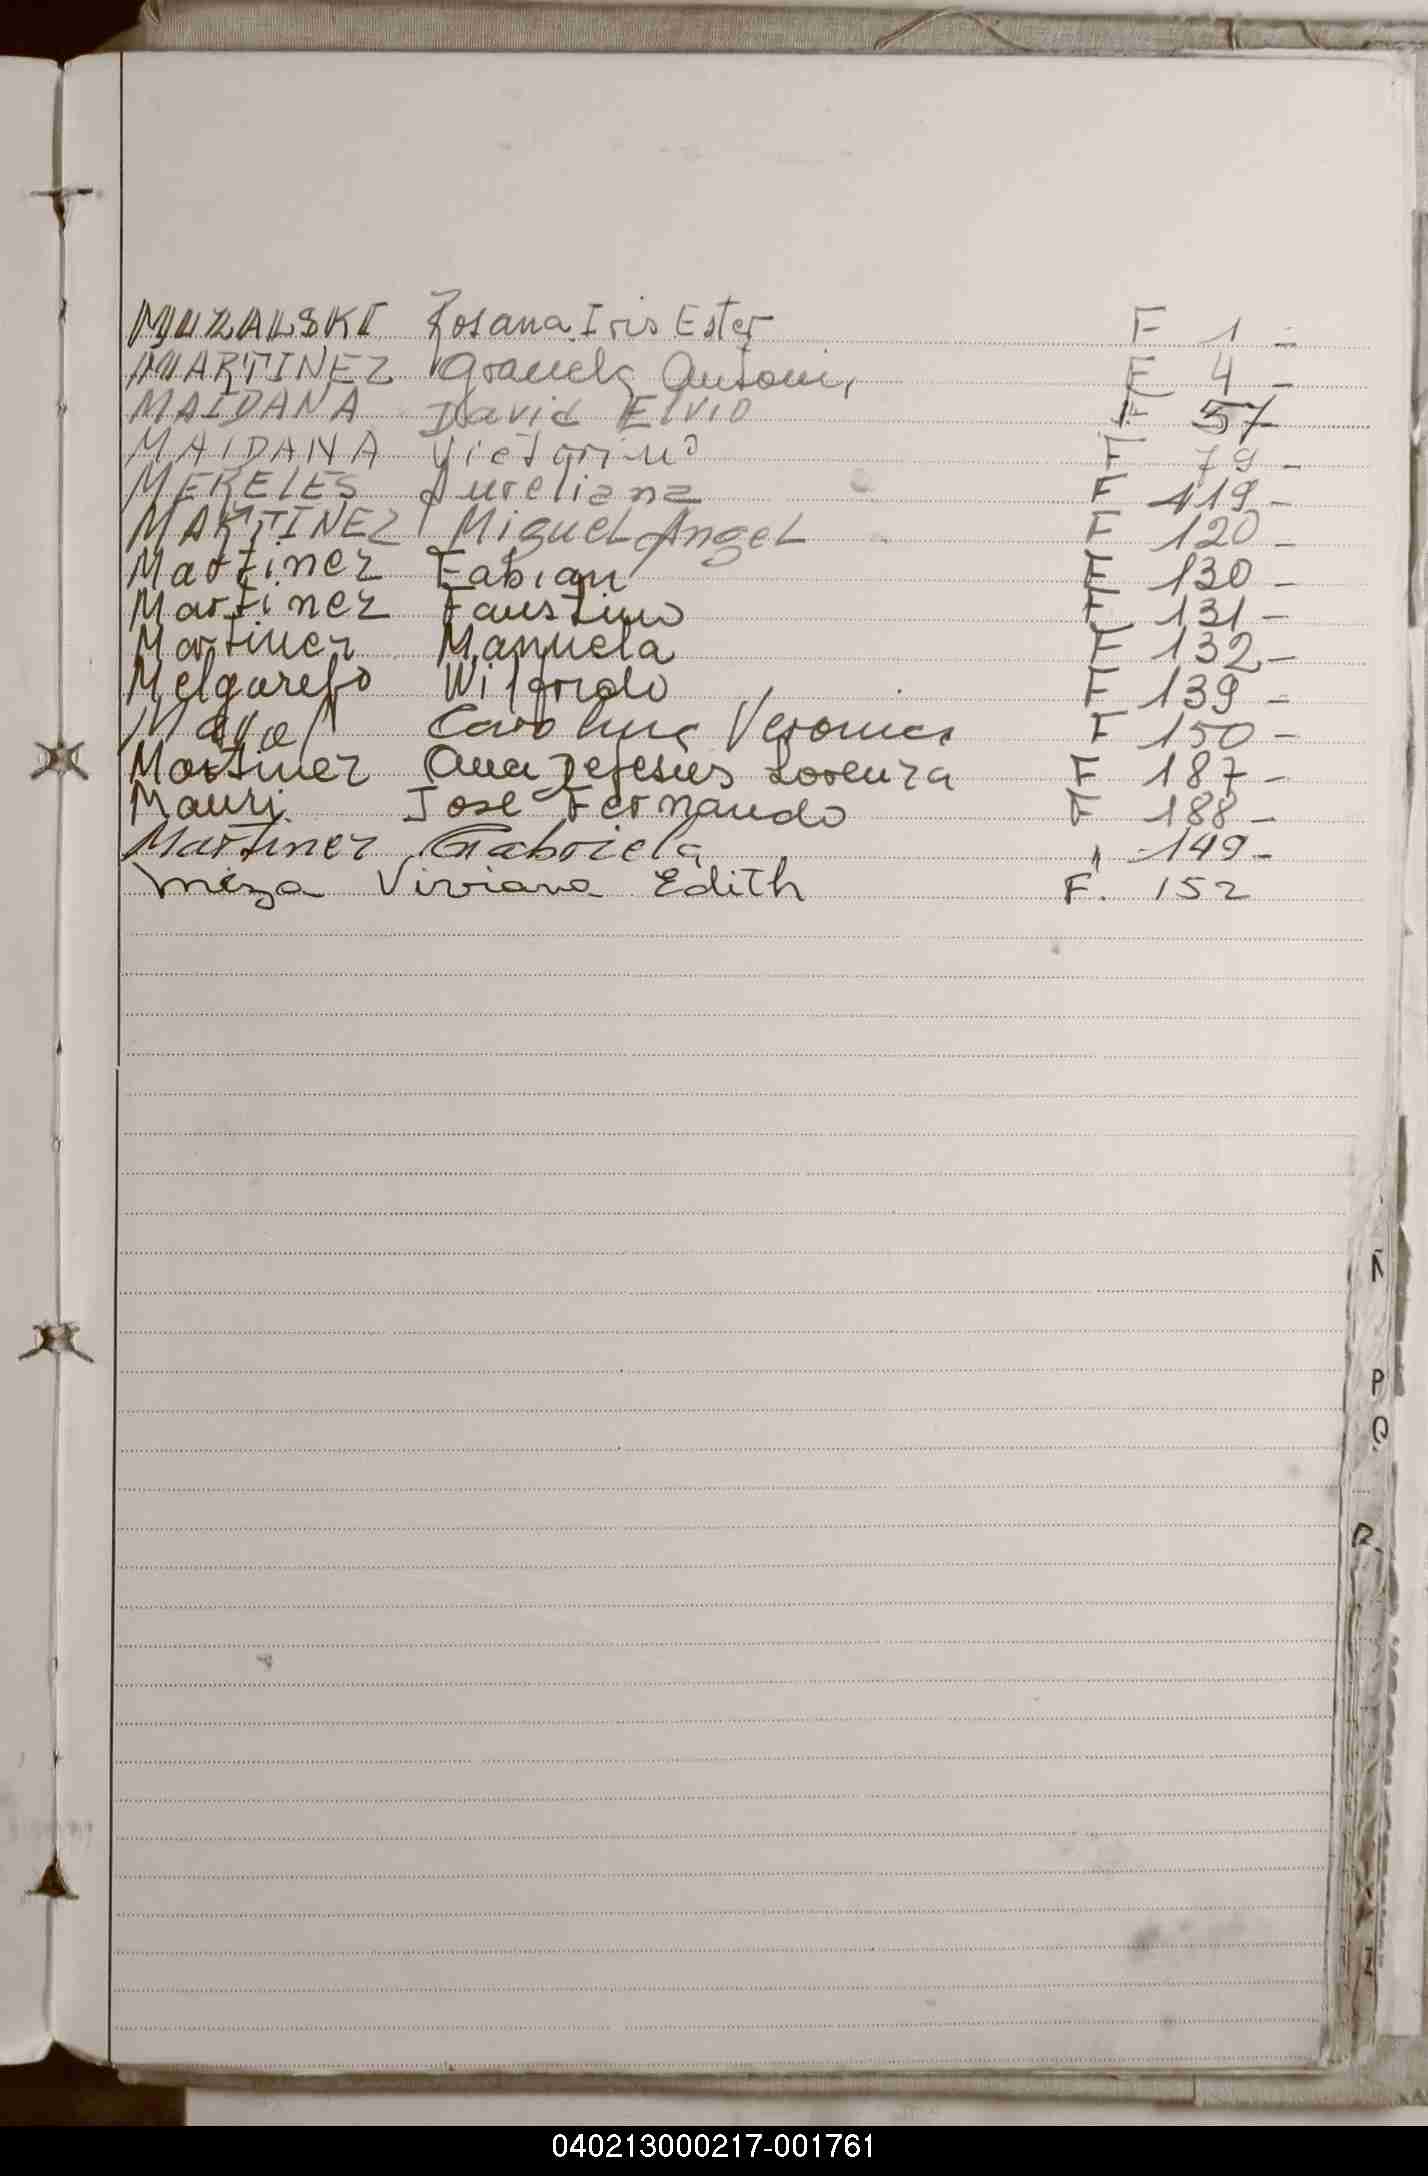 MUZALSKI Rosana Iris Ester F 1 -
MARTINEZ Graciela Antoni, F 4 -
MAIDANA David Elvio F 57
MAIDANA Victorino F 79 -
MERELES Aureliana F 119 -
MARTINEZ Miguel Angel F 120 -
Martinez Fabian F 130 -
Martinez Faustino F 131 -
Martinez Manuela F 132 -
Melgarejo Wilfrido F 139 -
Carolina Veronica F 150 -
Martinez Ana Lorenza F 187 -
Mauri Jose Fernando F 188 -
Martinez Gabriela " 149 -
Meza Viviana Edith F. 152
Ñ
P
Q
R
040213000217-001761